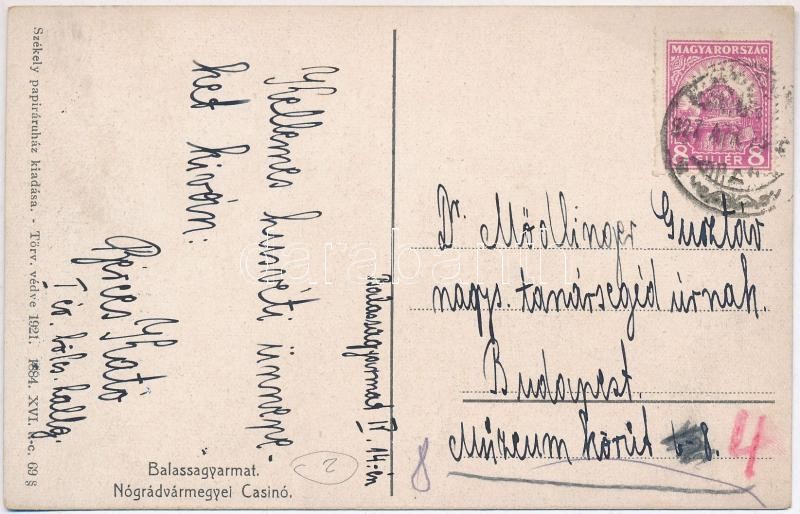 Székely papiráruház kiadása. - Törv. védve 1921. 1884. XVI. t.-c. 69 §
Kellemes husvéti ünnepe-
ket kiván:
Kató
I év. bölcs. hallg.
Balassagyarmat IV. 14-én
Balassagyarmat.
Nógrádvármegyei Casinó.
2
MAGYARORSZÁG
8 FILLÉR 8
Dr. Mödlinger Gusztáv
nagys. tanársegéd úrnak.
Budapest.
Múzeum körút 6-8.
4
8
darabanth